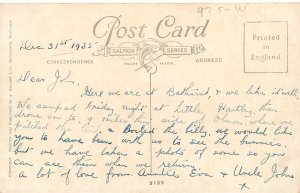 975-W
Post Card
Dec 31st 1935
SALMON SERIES
TRADE MARK
CORRESPONDENCE
ADDRESS
Printed in England
Dear Joh,
Here we are at Bathurst, & we like it well
We camped Friday night at Little Hartley, then
drove on to 9 miles this side of Oberon, where we
pitched the tent, & Boiled the billy, we would like
you to have been with us to see the bunnies.
but we have taken a photo of some so you
can see them when we return.
a lot of love from Aunties Eva & Uncle John
3139